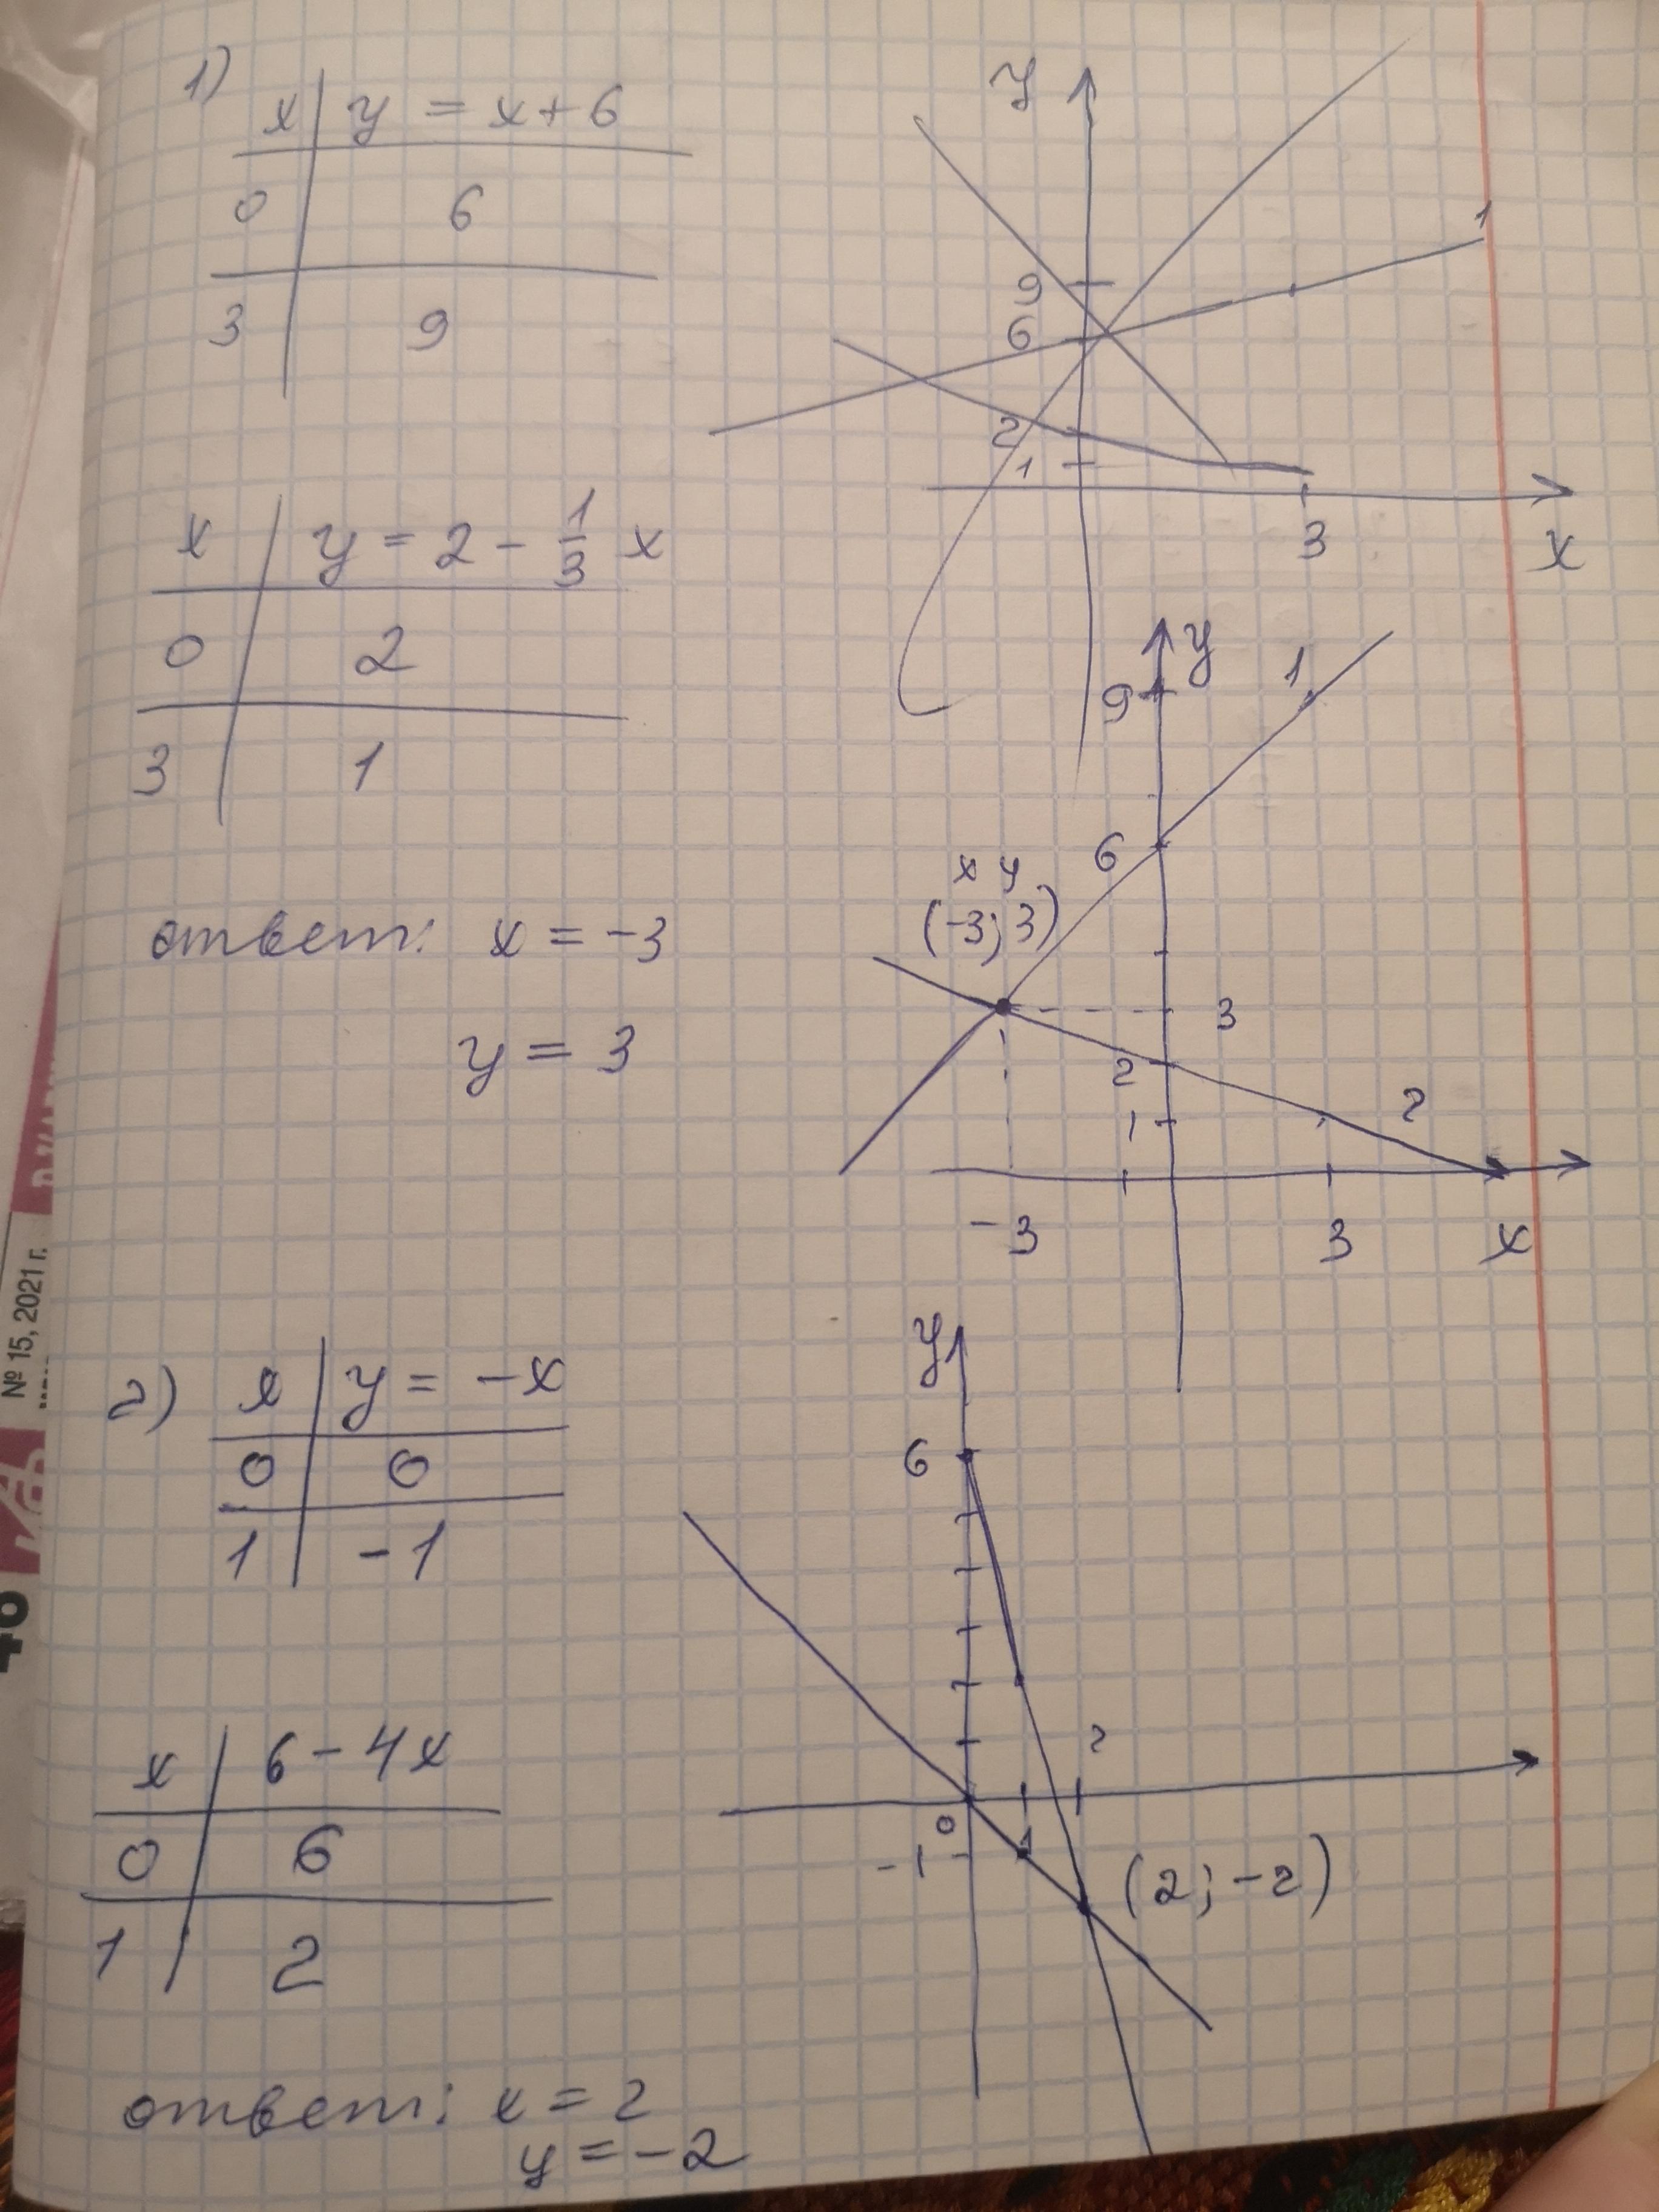 1)
x | y = x + 6
0 | 6
3 | 9
y
9
6
2
1
1
3
x
x | y = 2 - 1/3 x
0 | 2
3 | 1
y
1
9
6
x y
(-3; 3)
3
2
1
2
-3
3
x
ответ: x = -3
y = 3
2) x | y = -x
0 | 0
1 | -1
y
6
2
0
-1
1
(2; -2)
x | 6 - 4x
0 | 6
1 | 2
ответ: x = 2
y = -2
№ 15, 2021 г.